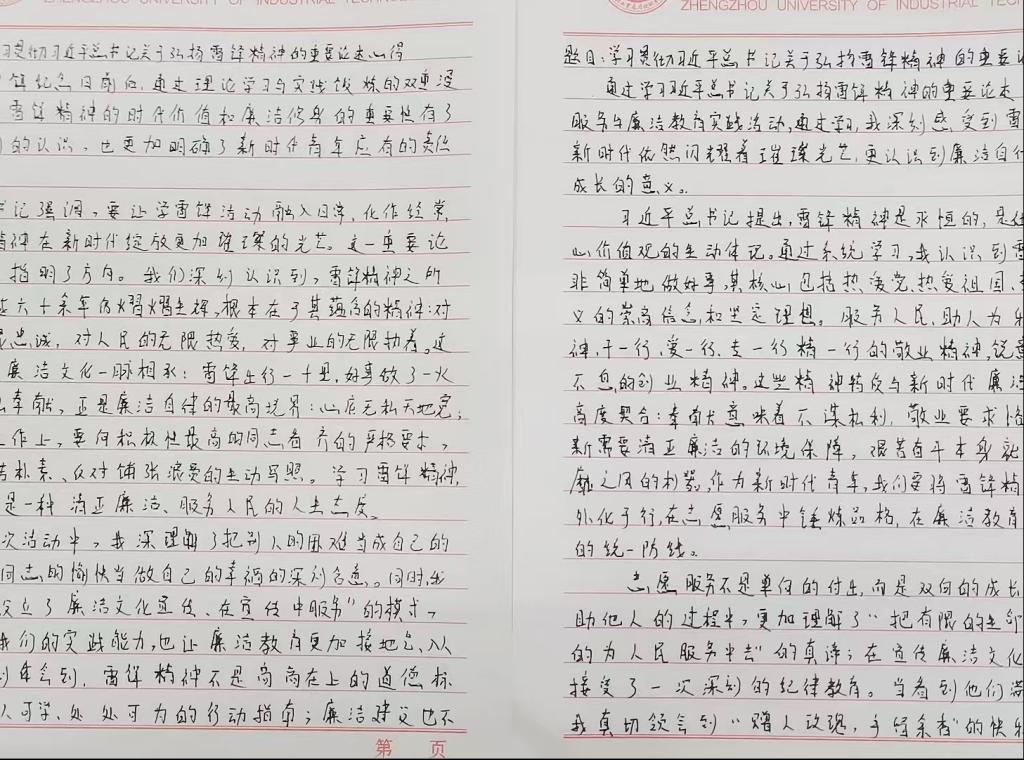 UNIVERSITY OF INDUSTRIAL
习贯彻习近平总书记关于弘扬雷锋精神的重要论述心得
锋纪念日前后,通过理论学习与实践锻炼的双重浸
雷锋精神的时代价值和廉洁修身的重要性有了
的认识,也更加明确了新时代青年应有的责任
书记强调,要让学雷锋活动融入日常,化作经常,
精神在新时代绽放更加璀璨的光芒。这一重要论
指明了方向。我们深刻认识到,雷锋精神之所
六十余年仍熠熠生辉,根本在于其蕴含的精神:对
忠诚,对人民的无限热爱,对事业的无限执着。这
廉洁文化一脉相承:雷锋出行一千里,好事做了一火
奉献,正是廉洁自律的最高境界:心底无私天地宽;
工作上,要向积极性最高的同志看齐的严格要求,
朴素、反对铺张浪费的生动写照。学习雷锋精神,
是一种清正廉洁、服务人民的人生态度。
次活动中,我深理解了把别人的困难当成自己的
同志的愉快当做自己的幸福的深刻含意。同时,我
立了廉洁文化宣传、在宣传中服务"的模式,
我们的实践能力,也让廉洁教育更加接地气、入
体会到,雷锋精神不是高高在上的道德标
人可学、处处可为的行动指南;廉洁建设也不
第 页
ZHENGZHOU UNIVERSITY OF INDUSTRIAL
题目:学习贯彻习近平总书记关于弘扬雷锋精神的重要
通过学习习近平总书记关于弘扬雷锋精神的重要论述
服务与廉洁教育实践活动,通过学习,我深刻感受到雷
新时代依然闪耀着璀璨光芒,更认识到廉洁自
成长的意义。
习近平总书记提出,雷锋精神是永恒的,是
心价值观的生动体现。通过系统学习,我认识到雷
非简单地做好事,其核心包括热爱党、热爱祖国、
义的崇高信念和坚定理想。服务人民、助人为
神,干一行、爱一行、专一行精一行的敬业精神,锐意
不息的创业精神。这些精神特质与新时代廉洁
高度契合:奉献意味着不谋私利,敬业要求恪
新需要清正廉洁的环境保障,艰苦奋斗本身就
靡之风的利器,作为新时代青年,我们要将雷锋精
外化于行,在志愿服务中锤炼品格,在廉洁教育
的统一防线。
志愿服务不是单向的付出,而是双向的成长
助他人的过程中,更加理解了"把有限的生命
的为人民服务中去"的真谛;在宣传廉洁文化
接受了一次深刻的纪律教育。当看到他们满
我真切领会到"赠人玫瑰,手留余香"的快